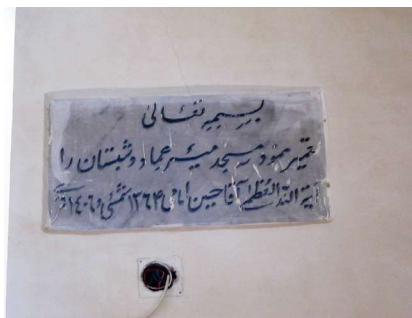 بسمه تعالی
تعمیر نمود مسجد میر عماد و شبستان را
آیة الله العظمی آقا حسین امامی ۱۳۶۴ شمسی و ۱۴۰۶